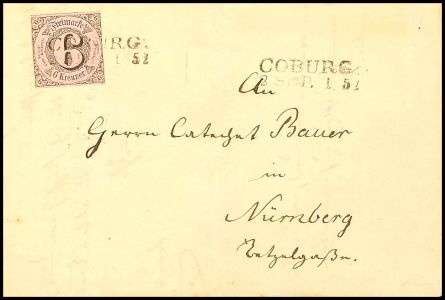 Freimarke
6
6 Kreuzer
COBURG.
1 52
COBURG.
2 SEP. 1 52
An
Herrn Catechet Bauer
in
Nürnberg
Tetzelgaße.